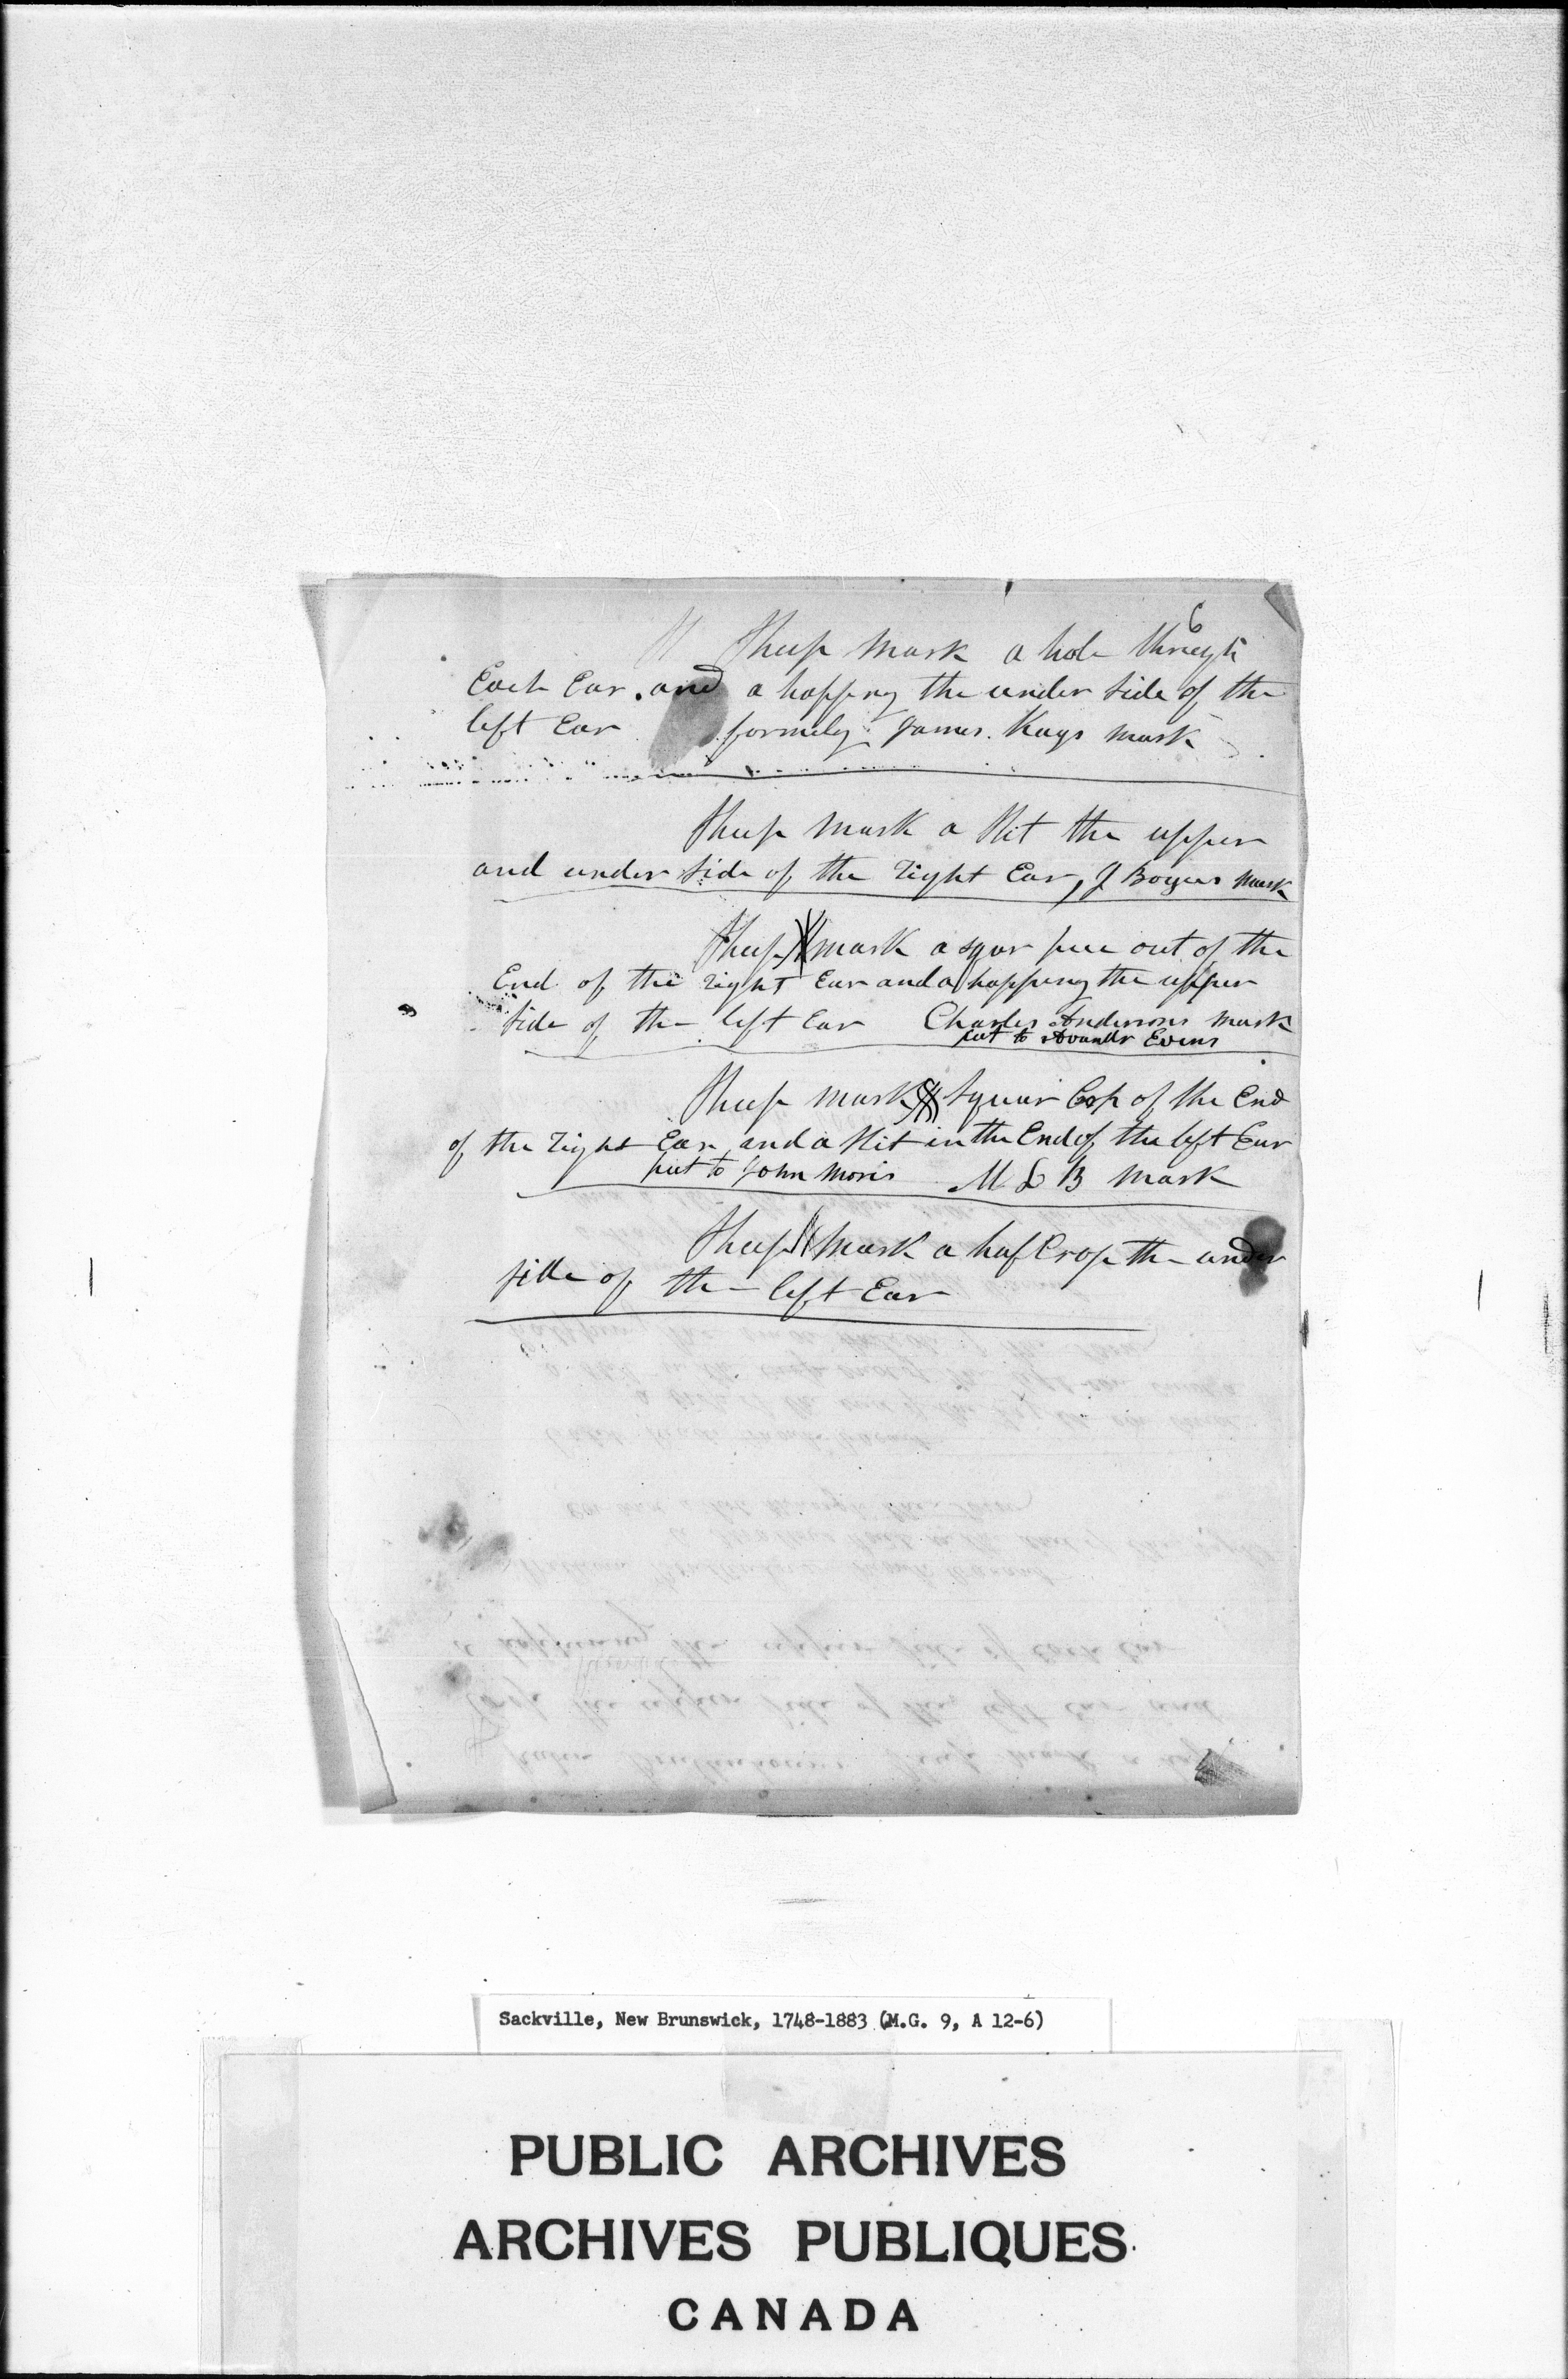 6
Sheep mark a hole through
Each Ear. and a happeny the under side of the
left Ear formely James Kays mark
Sheep mark a slit the upper
and under side of the right Ear, J Boyers mark
Sheep mark a sqar pece out of the
End of the right Ear and a happeny the upper
side of the left Ear Charles Andersons mark
put to Evens
Sheep mark Squar Crop of the End
of the right Ear and a slit in the End of the left Ear
put to John Moris M L B mark
Sheep mark a haf Crop the under
side of the left Ear
Sackville, New Brunswick, 1748-1883 (M.G. 9, A 12-6)
PUBLIC ARCHIVES
ARCHIVES PUBLIQUES
CANADA